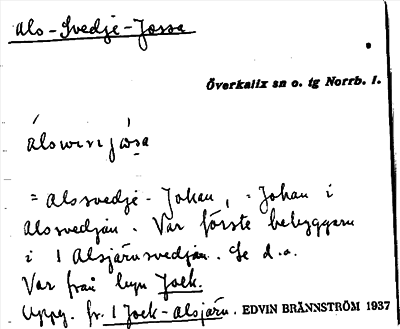 Als-Svedje-Jossa
Överkalix sn o. tg Norrb. l.
= Alssvedje-Johan, = Johan i
Alssvedjan. Var förste bebyggaren
i 1 Alsjärnsvedjan. Se d.o.
Var från byn Joek.
Uppg. fr. 1 Joek-alsjärn. EDVIN BRÄNNSTRÖM 1937